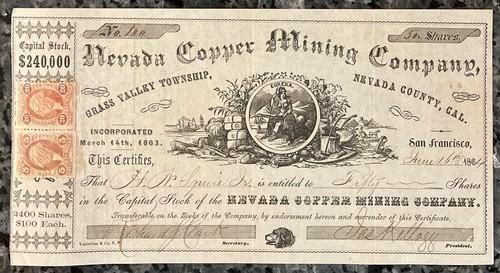 No. 160
50 Shares,
Capital Stock,
$240,000
Nevada Copper Mining Company,
GRASS VALLEY TOWNSHIP,
NEVADA COUNTY, CAL.
EUREKA
INCORPORATED
March 14th, 1863.
San Francisco,
June 16th 1864
This Certifies,
That H. W. Squire Jr. is entitled to Fifty Shares
in the Capital Stock of the NEVADA COPPER MINING COMPANY.
Transferable on the Books of the Company, by endorsement hereon and surrender of this Certificate.
2400 Shares,
$100 Each.
Secretary.
Jas Kellogg
President.